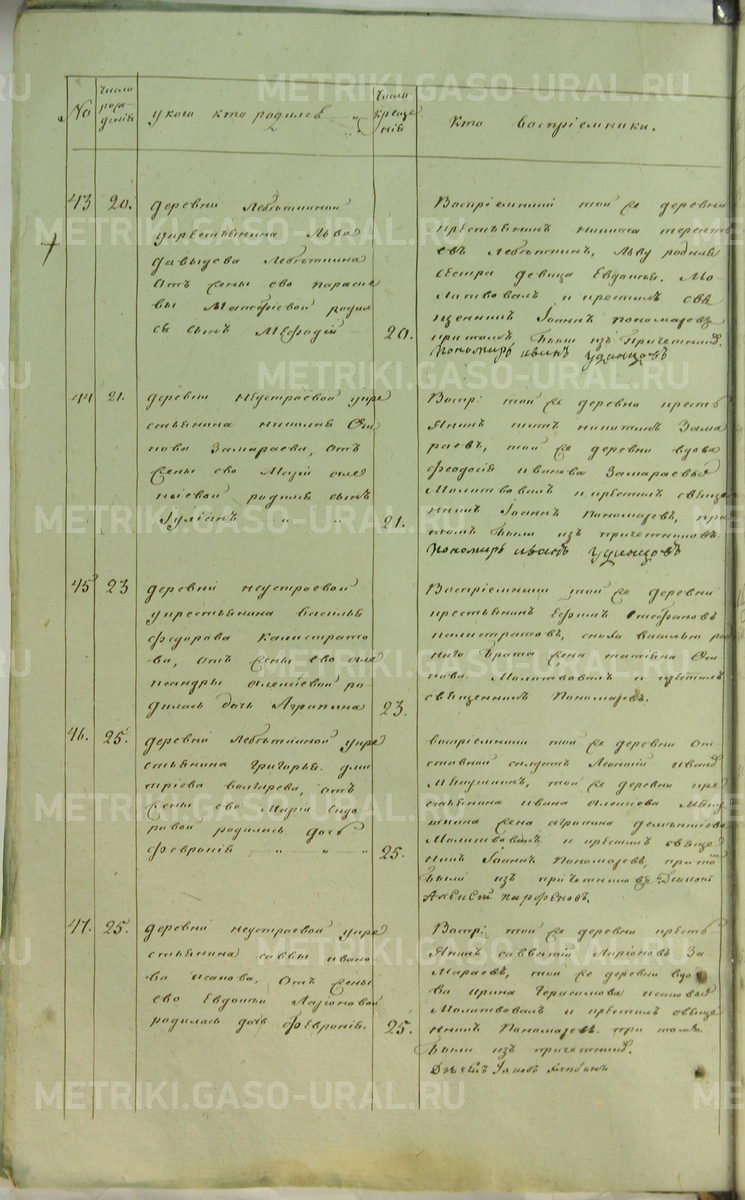 METRIKI.GASO-URAL.RU
№
Число рождений
у кого кто родился
Число крещений
Кто восприемники.
43 20.
деревни
укрестьянина Льва
Давыдова
отъ жены ево Параске
вы родил
ся сынъ Мефодий
20.
Восприемники той же деревни
крестьянинъ Никита
Льву родная
сестра девица Евдокия. Мо
литвовалъ и крестилъ свя
щенникъ Iоаннъ Пономаревъ
притомъ были изъ причетниковъ.
пономарь иванъ удинцовъ
44 21.
деревни Неустроевой укре
стьянина Николая Оси
пова Замараева, отъ
жены ево Марии Але
ксiевой родился сынъ
Iулiанъ
21.
Воспр: той же деревни кресть
янинъ Никитинъ Зама
раевъ, той же деревни вдова
Феодосия Иванова Замараева
Молитвовалъ и крестилъ священ
никъ Iоаннъ Пономаревъ, при
томъ были изъ причетниковъ.
пономарь иванъ удинцовъ
45 23
деревни неустроевой
укрестьянина Василья
Федорова Калистрато
ва, отъ жены ево Але
ксандры Алексiевой ро
дилась дочь Агрипина
23.
Восприемники той же деревни
крестьянинъ Ефимъ Стефановъ
Калистратовъ, сноха Василью род
наго брата жена Оси
пова. Молитвовалъ и крестилъ
священникъ Пономаревъ.
46. 25.
деревни укре
стьянина Григорья Дми
трiева Болгарева, отъ
жены ево Марiи Сидо
ровой родилась дочь
Феврония
25.
Восприемники той же деревни От
ставной солдатъ Леонтий Иванъ
той же деревни кре
стьянина Ивана Алексеева
жена Агрипина Дементиева
Молитвовалъ и крестилъ свящ
никъ Iоаннъ Пономаревъ, притомъ
были изъ причетниковъ Дьяконъ
Алексей Парфеновъ.
47. 25.
деревни неустроевой укре
стьянина Саввы Ивано
ва Исакова, Отъ жены
ево Евдокiи Ларионовой
родилась дочь Феврония.
25.
Воспр: той же деревни кресть
янинъ Савватий Ларионовъ За
мараевъ, той же деревни вдо
ва Ирина Герасимова Исакова
Молитвовалъ и крестилъ священ
никъ Пономаревъ. при томъ
были изъ причетниковъ.
Iаковъ